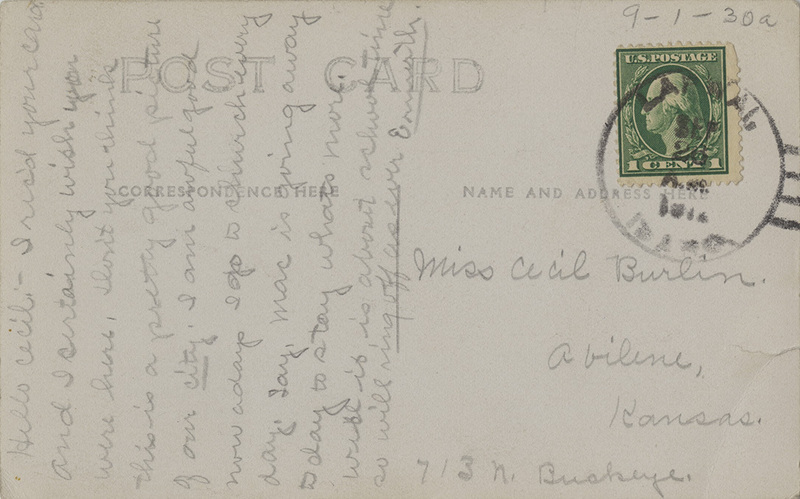 9-1-30a
POST CARD
CORRESPONDENCE HERE
NAME AND ADDRESS HERE
U.S. POSTAGE
1 CENT 1
SEP
26
A.M.
IDAHO
Hello Cecil:- I rec'd your card
and I certainly wish you
were here. Don't you think
this is a pretty good picture
of our city. I am awful good
now a days I go to church every
day. Say, Mac is going away
today to stay whats more.
well it is about school time
so will ring off as ever
Miss Cecil Burlin.
Abilene,
Kansas.
N. Buckeye.